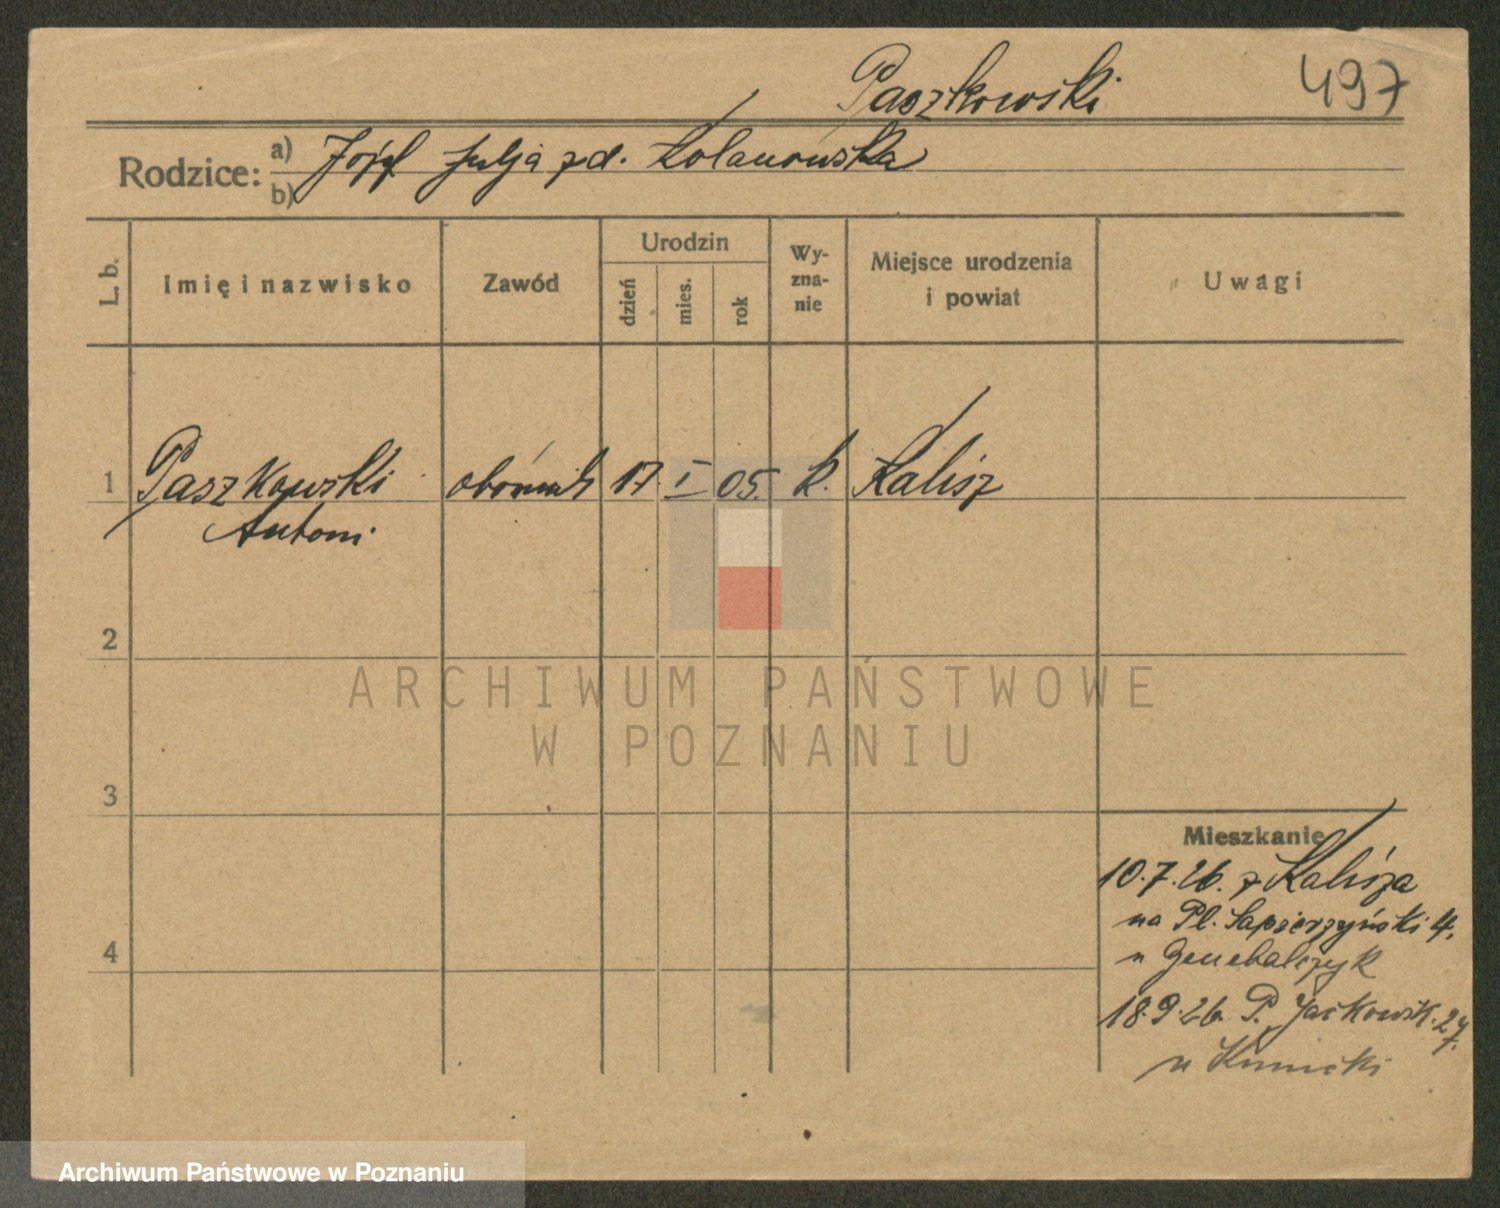 Paszkowski
497
Rodzice: a) Józef Julja zd. Kolanowska
b)
L. b. Imię i nazwisko Zawód Urodzin dzień mies. rok Wy-zna-nie Miejsce urodzenia i powiat Uwagi
1 Paszkowski 17. I 05. k. Kalisz
Antoni
2
ARCHIWUM PAŃSTWOWE
W POZNANIU
3
Mieszkanie
10.7.26. z Kalisza
na Pl. Sapierzyński 4.
4
18.9.26. P. Jackowsk. 27.
Archiwum Państwowe w Poznaniu